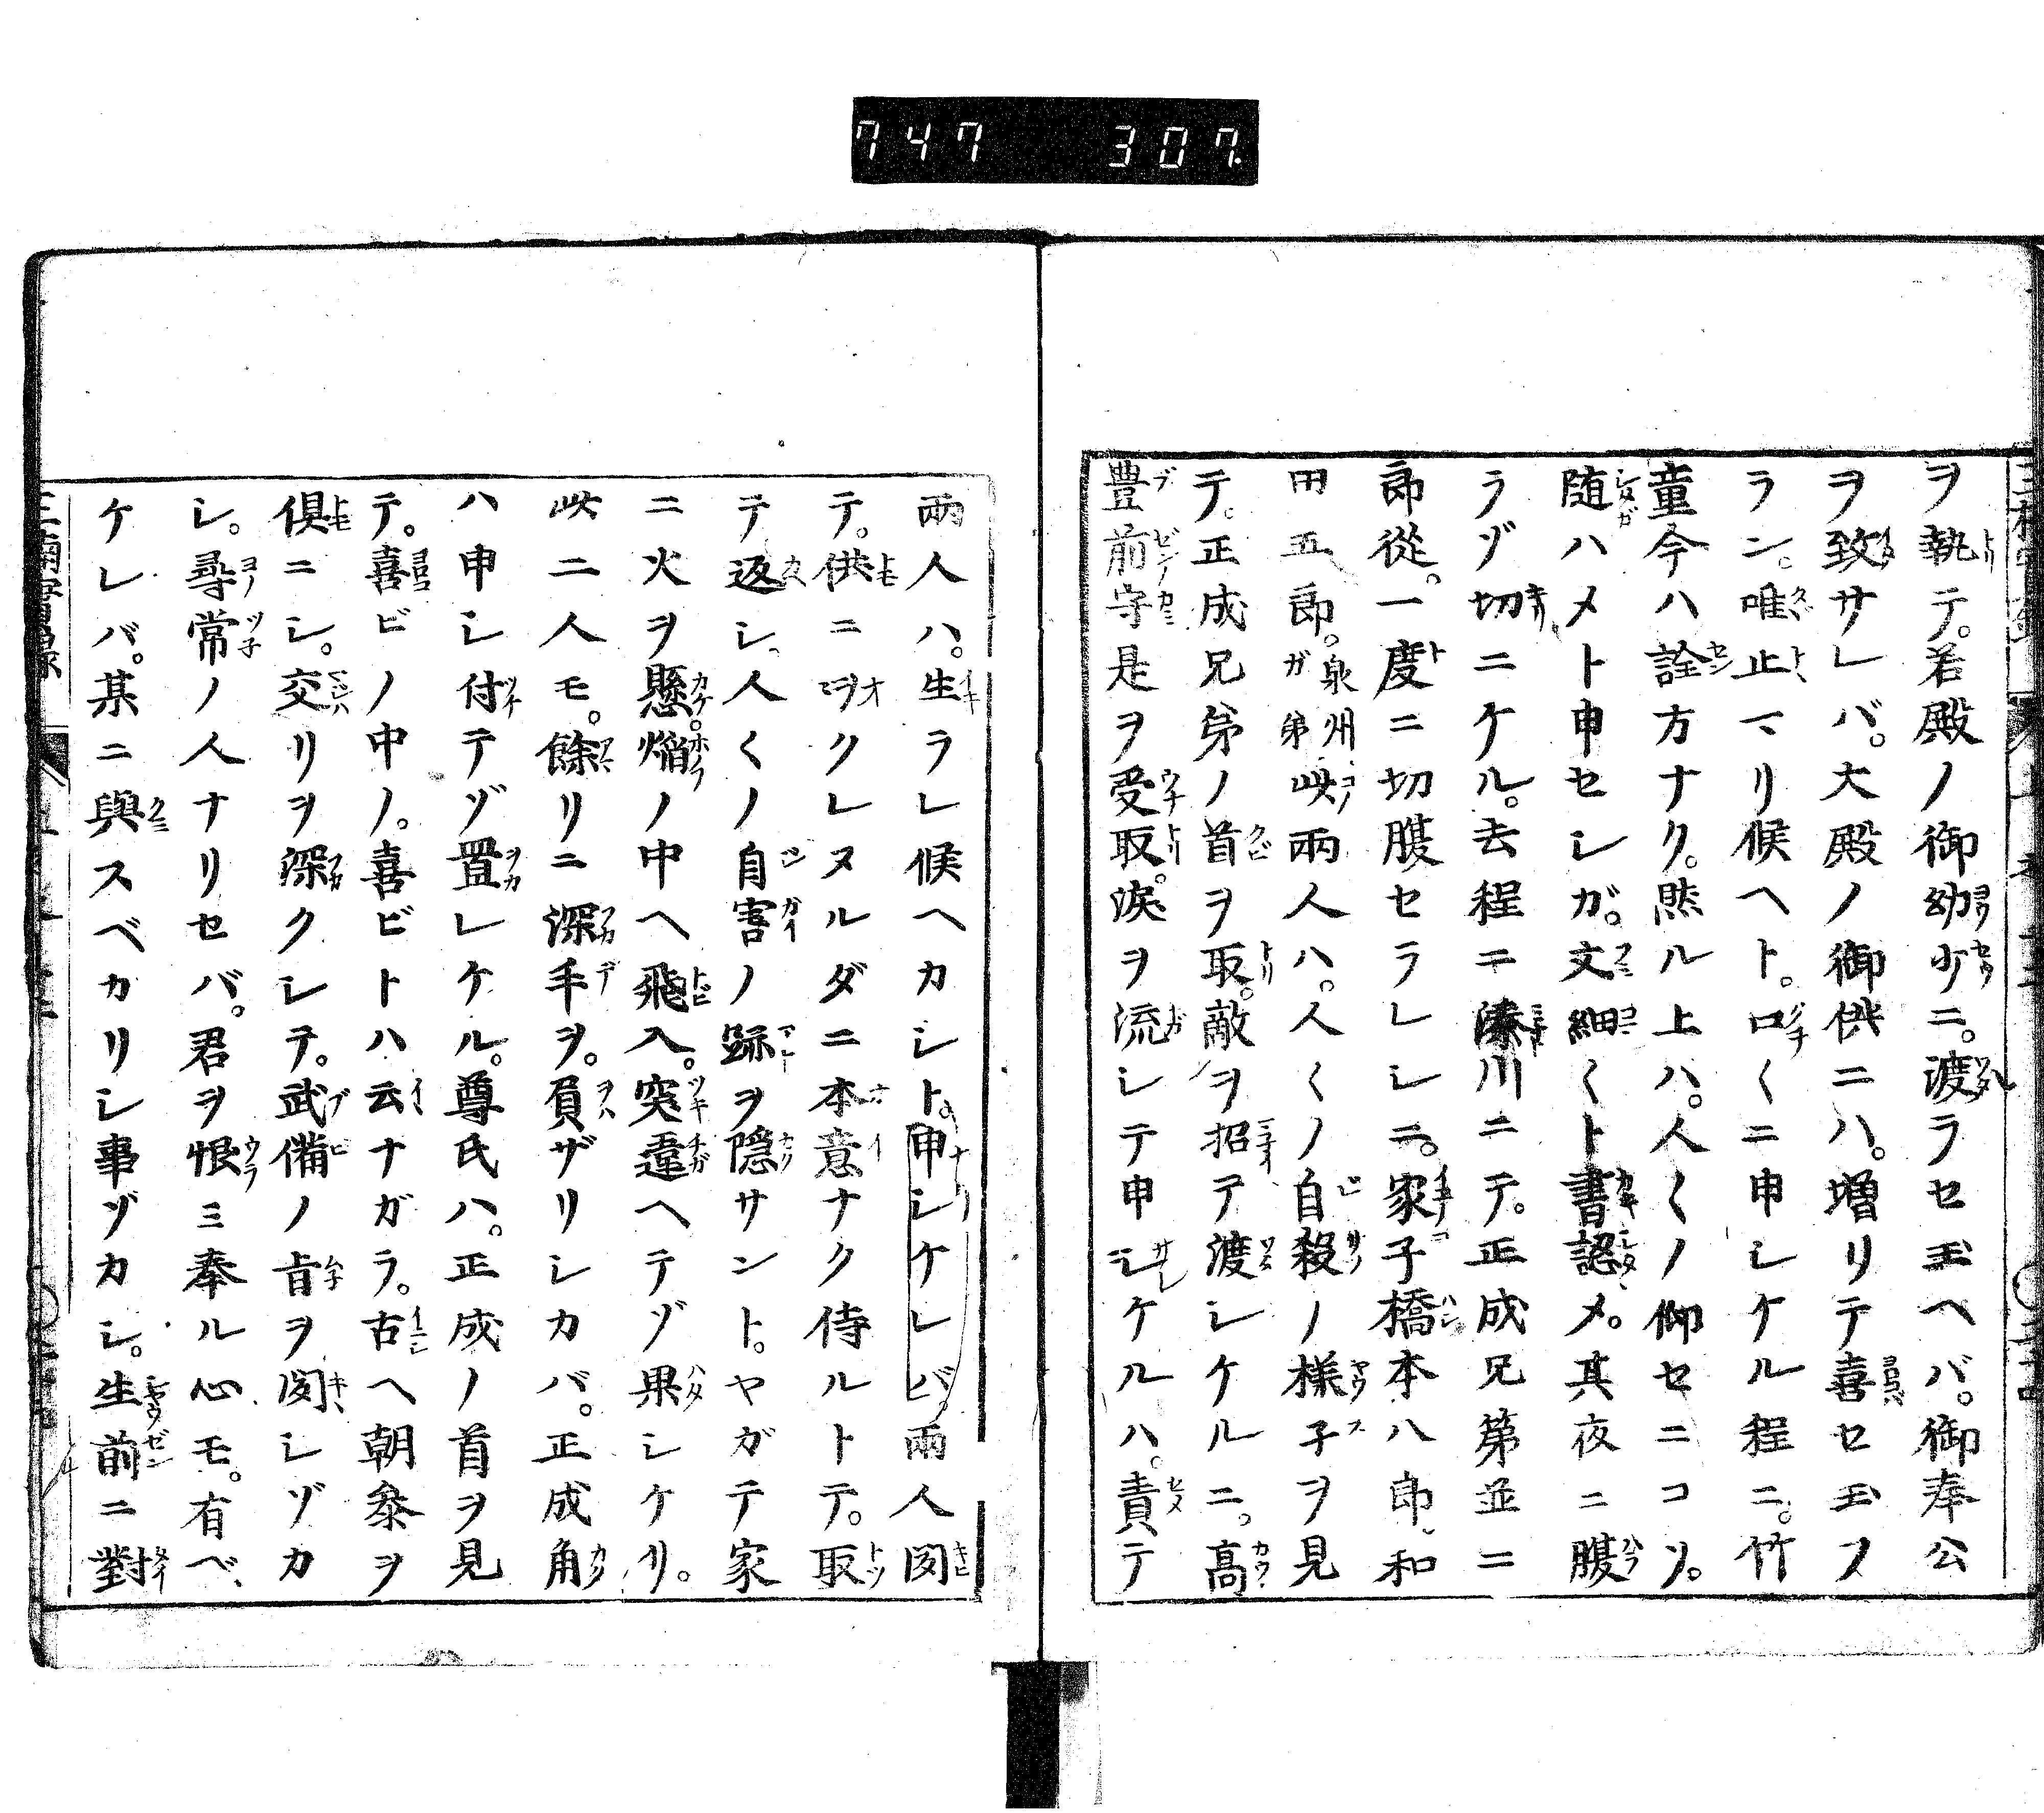 747 307
ヲ執テ。若殿ノ御幼少ニ。渡ラセ玉ヘバ。御奉公
ヲ致サレバ。大殿ノ御供ニハ。増リテ喜セ玉フ
ラン。唯止マリ候ヘト。口〱ニ申シケル程ニ。竹
童今ハ詮方ナク。㷔ル上ハ。人〱ノ仰セニコソ。
随ハメト申セシガ。文細〱ト書認メ。其夜ニ腹
ヲゾ切ニケル。去程ニ湊川ニテ。正成兄第並ニ
郎從。一度ニ切腹セラレシニ。家子橋本八郎、和
田五郎。泉州ガ弟此兩人ハ。人〱ノ自殺ノ様子ヲ見
テ。正成兄弟ノ首ヲ取。敵ヲ招テ渡シケルニ。高
豊前守是ヲ受取。涙ヲ流シテ申シケルハ。責テ
兩人ハ。生ラレ候ヘカシト。申シケレバ。兩人聞
テ。供ニヲクレヌルダニ本意ナク侍ルトテ。取
テ返シ、人〱ノ自害ノ跡ヲ隠サント。ヤガテ家
ニ火ヲ懸。焔ノ中ヘ飛入。突違ヘテゾ果シケリ。
此二人モ。餘リニ深手ヲ。負ザリシカバ。正成角
ハ申シ付テゾ置レケル。尊氏ハ。正成ノ首ヲ見
テ。喜ビノ中ノ。喜ビトハ云ナガラ。古ヘ朝叅ヲ
倶ニシ。交リヲ深クシテ。武備ノ旨ヲ聞シゾカ
シ。尋常ノ人ナリセバ。君ヲ恨ミ奉ル心モ。有ベ
ケレバ。某ニ與スベカリシ事ゾカシ。生前ニ對